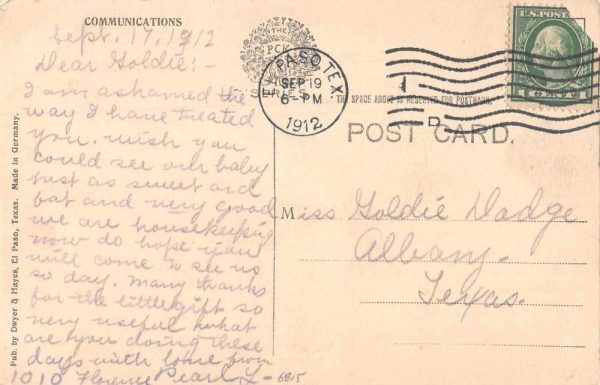 COMMUNICATIONS
Sept. 17, 1912
Dear Goldie:-
I am ashamed the
way I have treated
you. wish you
could see our baby
just as sweet and
fat and very good
we are housekeeping
now do hope you
will come to see us
so day. Many thanks
for the little gift so
very useful what
are you doing these
days with love from
1010 Florence Pearl L-
6815
Pub. by Dwyer & Hayes, El Paso, Texas. Made in Germany.
THE
PCK
SERIES
EL PASO, TEX.
SEP 19
6-PM
1912
1
D
U.S. POSTAGE
1 CENT 1
THE SPACE ABOVE IS RESERVED FOR POSTMARK.
POST CARD.
Miss Goldie Dodge
Albany.
Texas.